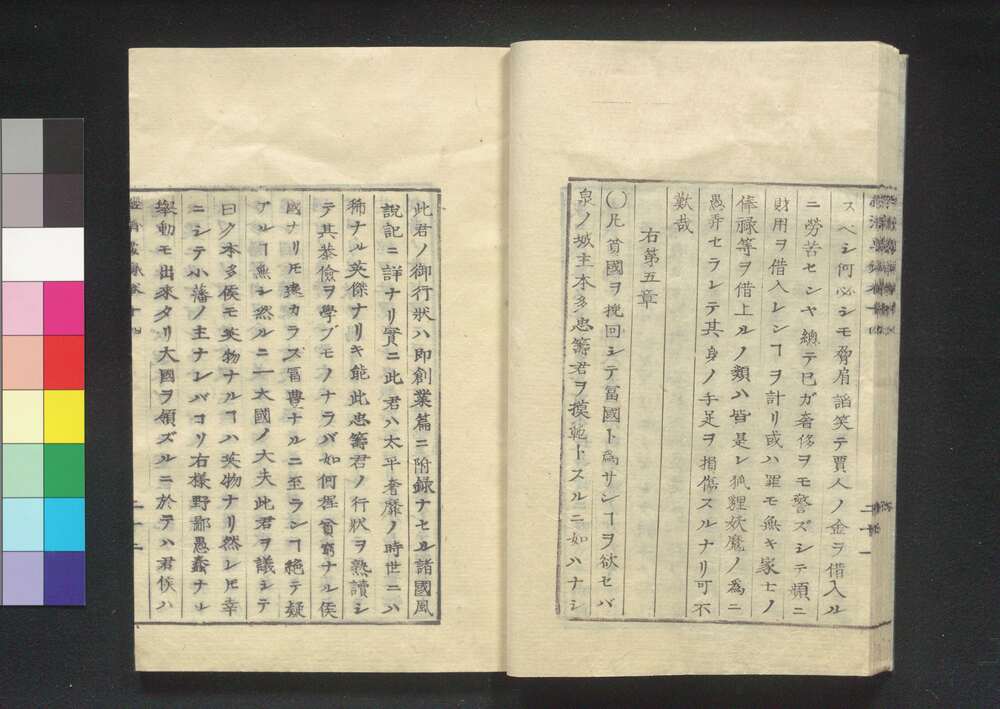 スベシ何必シモ脅肩諂笑テ賈人ノ金ヲ借入ル
ニ勞苦センヤ總テ已ガ奢侈ヲモ警ズシテ頻ニ
財用ヲ借入レンヿヲ計リ或ハ罪モ無キ家士ノ
俸祿等ヲ借上ルノ類ハ皆是レ狐貍妖魔ノ為ニ
愚弄セラレテ其身ノ手足ヲ損傷スルナリ可不
歎哉
右第五章
〇凡貧國ヲ挽回シテ冨國ト為サンヿヲ欲セバ
泉ノ城主本多忠籌君ヲ摸範トスルニ如ハナシ
此君ノ御行狀ハ即創業篇ニ附録ナセル諸國風
説記ニ詳ナリ實ニ此君ハ太平奢靡ノ時世ニハ
稀ナル英傑ナリキ能此忠籌君ノ行狀ヲ熟讀シ
テ其恭儉ヲ學ブモノナラバ如何程貧窮ナル侯
國ナリトモ遠カラズ冨豊ナルニ至ランヿ絶テ疑
アルヿ無シ然ルニ一大國ノ大夫此君ヲ議シテ
曰ク本多侯モ英物ナルヿハ英物ナリ然レトモ幸
ニシテ小藩ノ主ナレバコソ右樣野鄙愚蠢ナル
擧動モ出來タリ大國ヲ領ズルニ於テハ君侯ハ